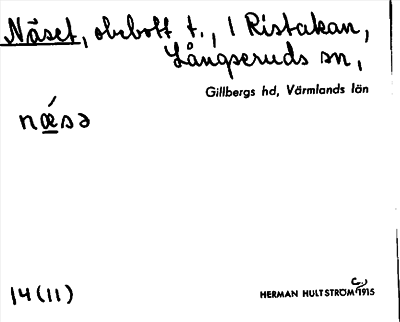 Näset, obebott t., / Ristakan,
Långseruds sn,
Gillbergs hd, Värmlands län
nǽsə
14(11)
HERMAN HULTSTRÖM c. 1915